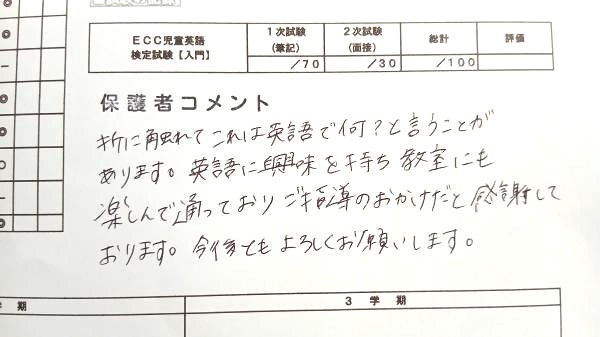 ECC児童英語
検定試験【入門】
1次試験
(筆記)
2次試験
(面接)
総計
評価
/70
/30
/100
保護者コメント
折に触れて これは英語で何?と言うことが
あります。英語に興味を持ち 教室にも
楽しんで通っており ご指導のおかげだと 感謝して
おります。今後とも よろしくお願いします。
学期
3学期